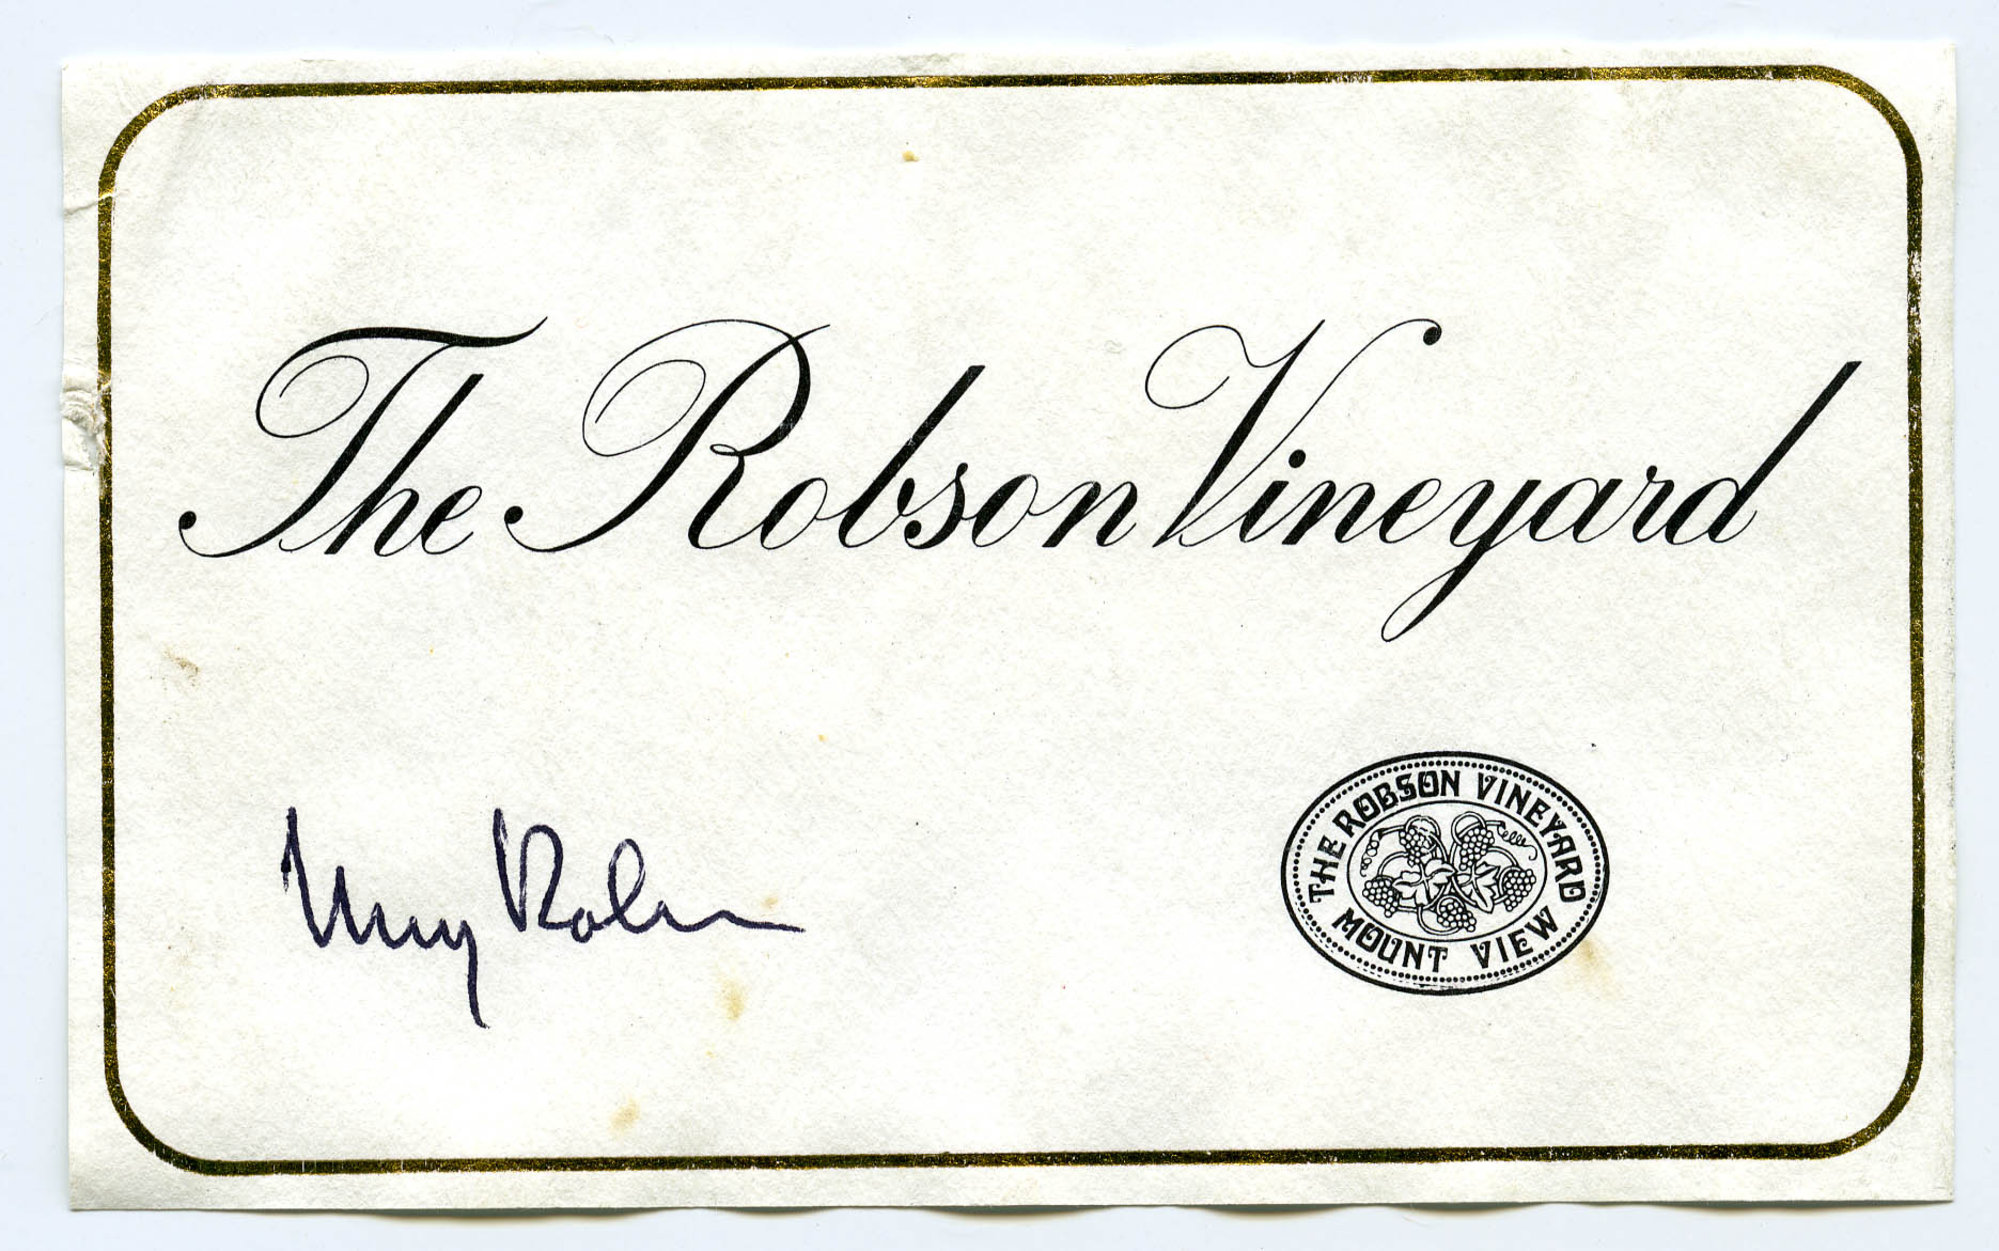 The Robson Vineyard
Murray Robson
THE ROBSON VINEYARD
MOUNT VIEW